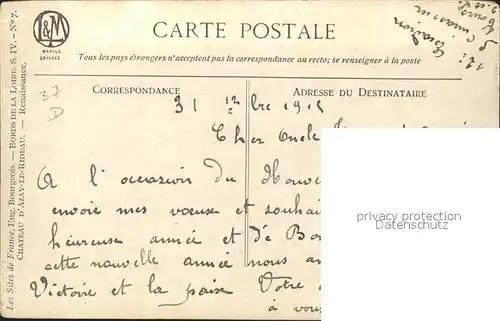 CARTE POSTALE
L&M
MARQUE DÉPOSÉE
Tous les pays étrangers n'acceptent pas la correspondance au recto; se renseigner à la poste
CORRESPONDANCE
ADRESSE DU DESTINATAIRE
37
D
31 12bre 191
Cher Oncle
A l'occasion du Nouve
envoie mes vœux et souhai
heureuse année et de Bon
cette nouvelle année nous a
Victoire et la paix Votre
à vous
Les Sites de France, Eug. Bourgeois. — BORDS DE LA LOIRE. S. IV. — N° 7.
CHATEAU D'AZAY-LE-RIDEAU. — Renaissance.
privacy protection
watermark